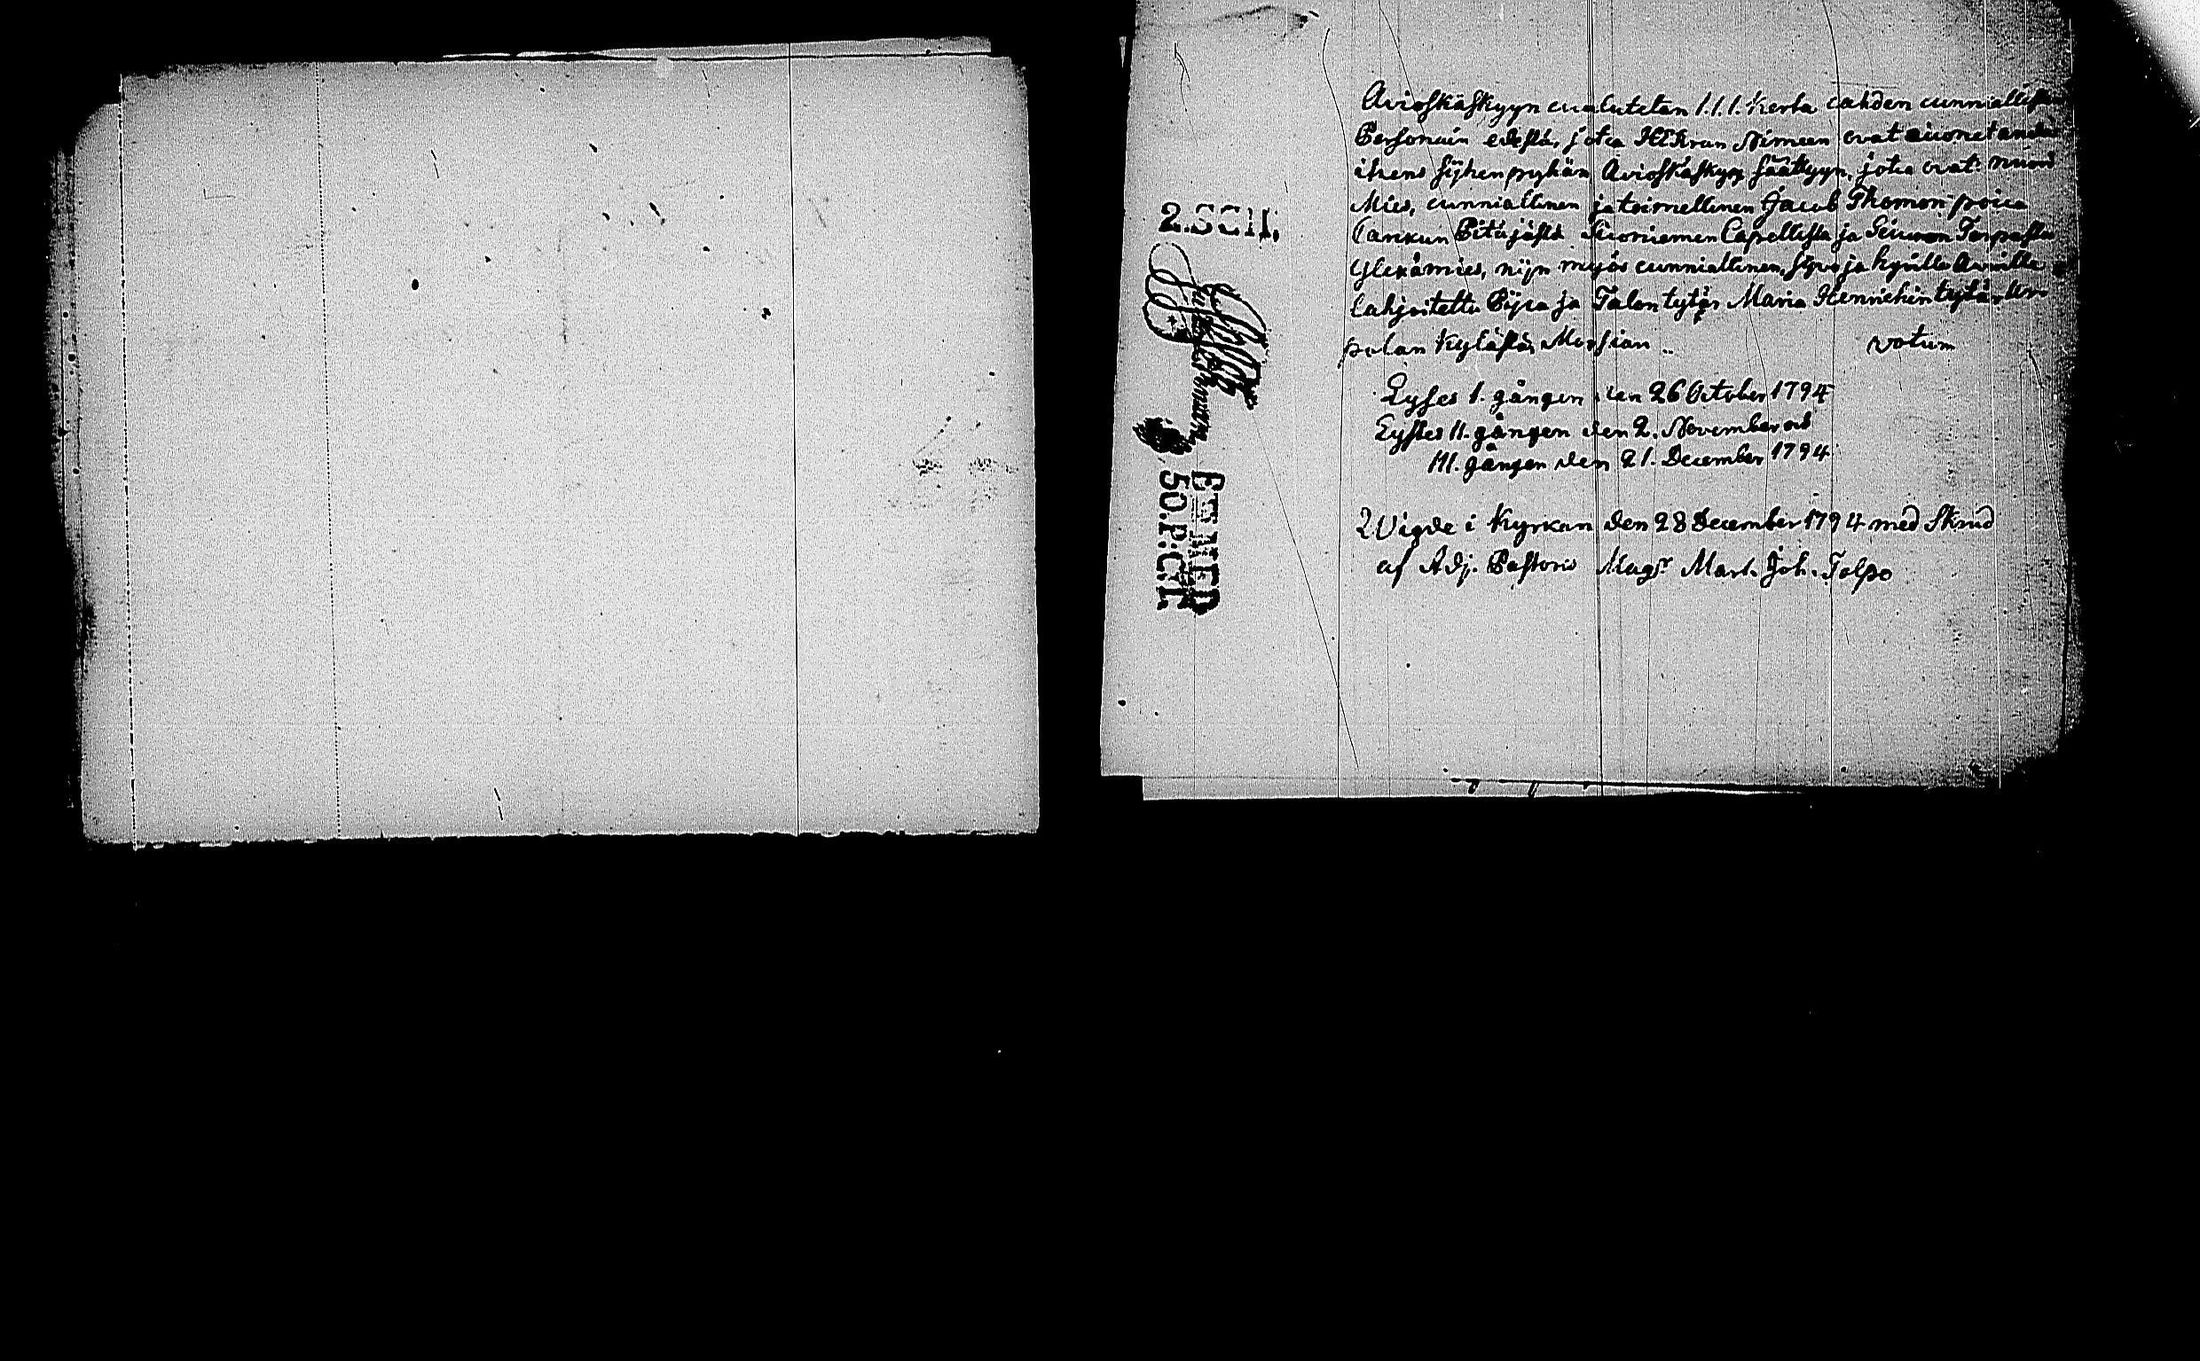 2.SCH.
ET MED
50.P:CT.
Avioskäskyyn cuulutetan I.I.I. kerta cahden cunniallisen
Personain edestä, jotca HERran Nimeen ovat aiuonet anda
itzens sijhen pyhän Avioskäskyn säättyyn, jotca ovat: nuori
Mies, cunniallinen ja toimellinen Jacob Thomon poica
Carckun Pitäjästä Suoniemen Capellista ja Torpasta
Ylexämies, nijn myös cunniallinen, sijviä ja hyvillä Avuilla
lahjoitettu Pijca ja Talon tytär Maria Hennrichin tytär
polan Kylästä, votum
Lyses I. gången den 26 October 1794
Lystes II. gången den 2. November
III. gången den 21. December 1794
Wigde i Kyrkan den 28 December 1794 med Skrud
af Adj. Pastoris Magr Mart. Joh. Tolpo